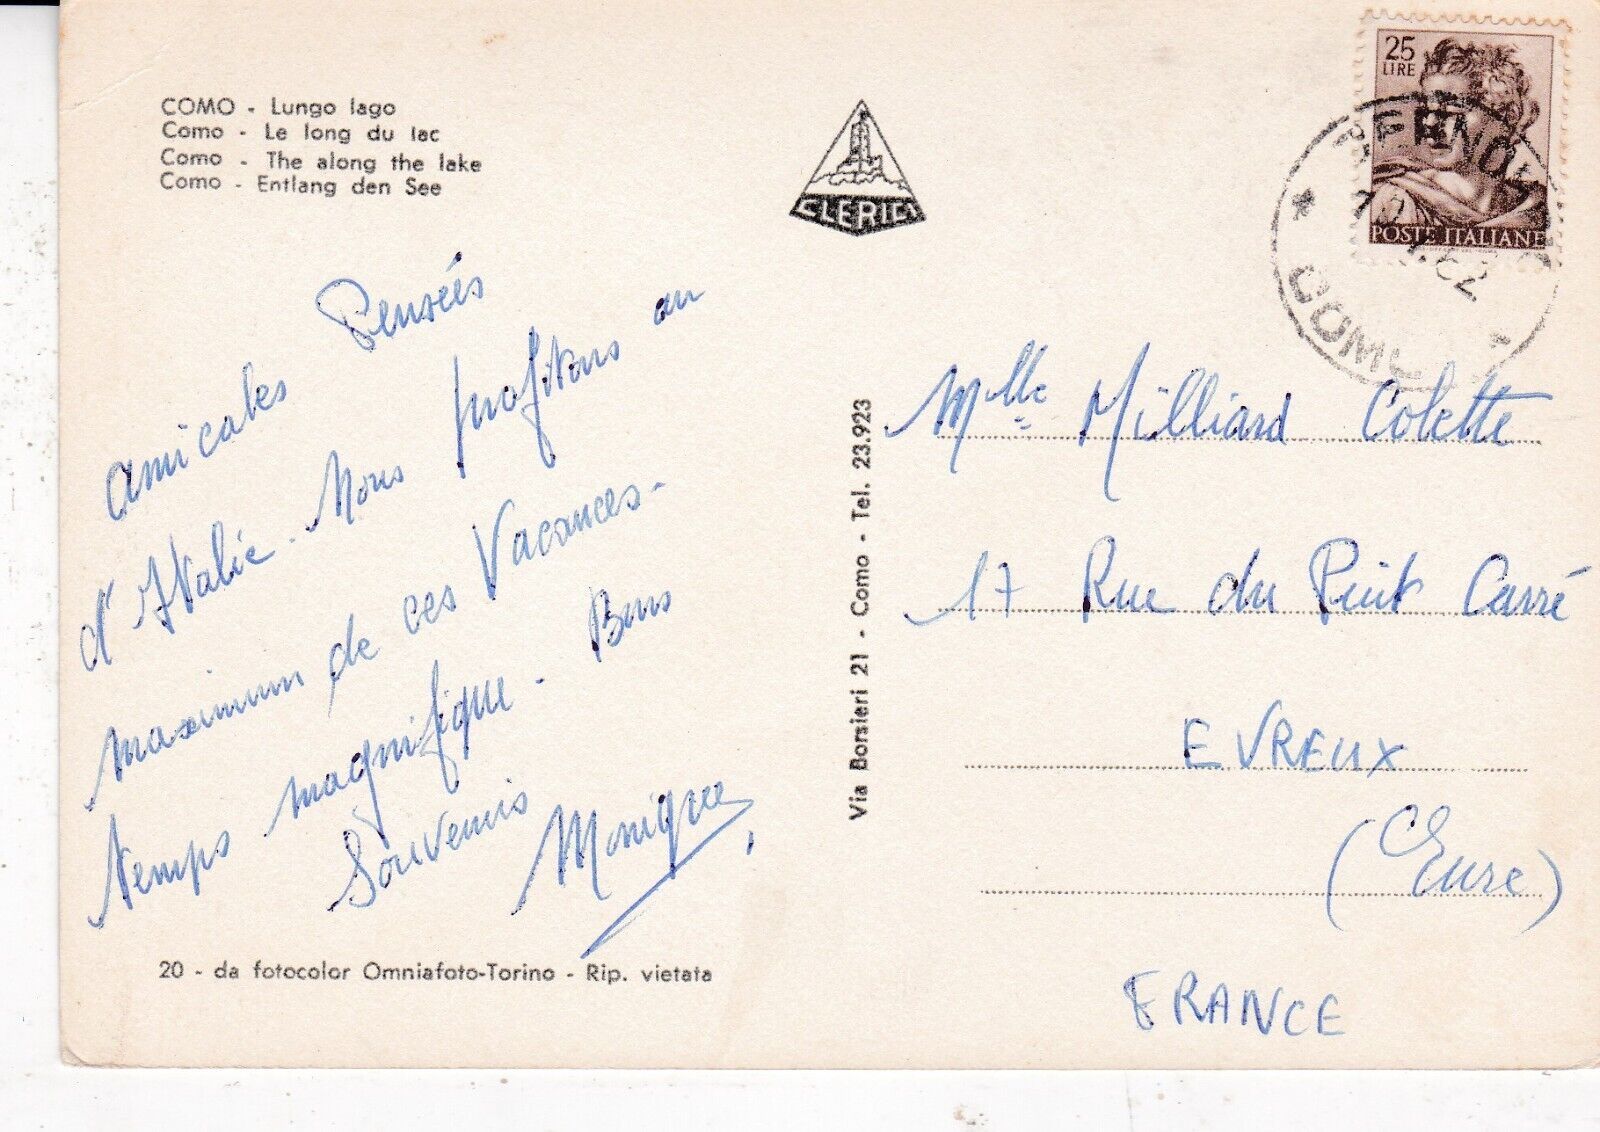 COMO - Lungo lago
Como - Le long du lac
Como - The along the lake
Como - Entlang den See
CLERICI
25
LIRE
POSTE ITALIANE
62
COMO
amicales Pensées
d'Italie - Nous profitons au
maximum de ces Vacances -
temps magnifique - Bons
Souvenirs
Monique
20 - da fotocolor Omniafoto-Torino - Rip. vietata
Via Borsieri 21 - Como - Tel. 23.923
Mlle Milliard Colette
17 Rue du Puit Carré
EVREUX
(Eure)
FRANCE